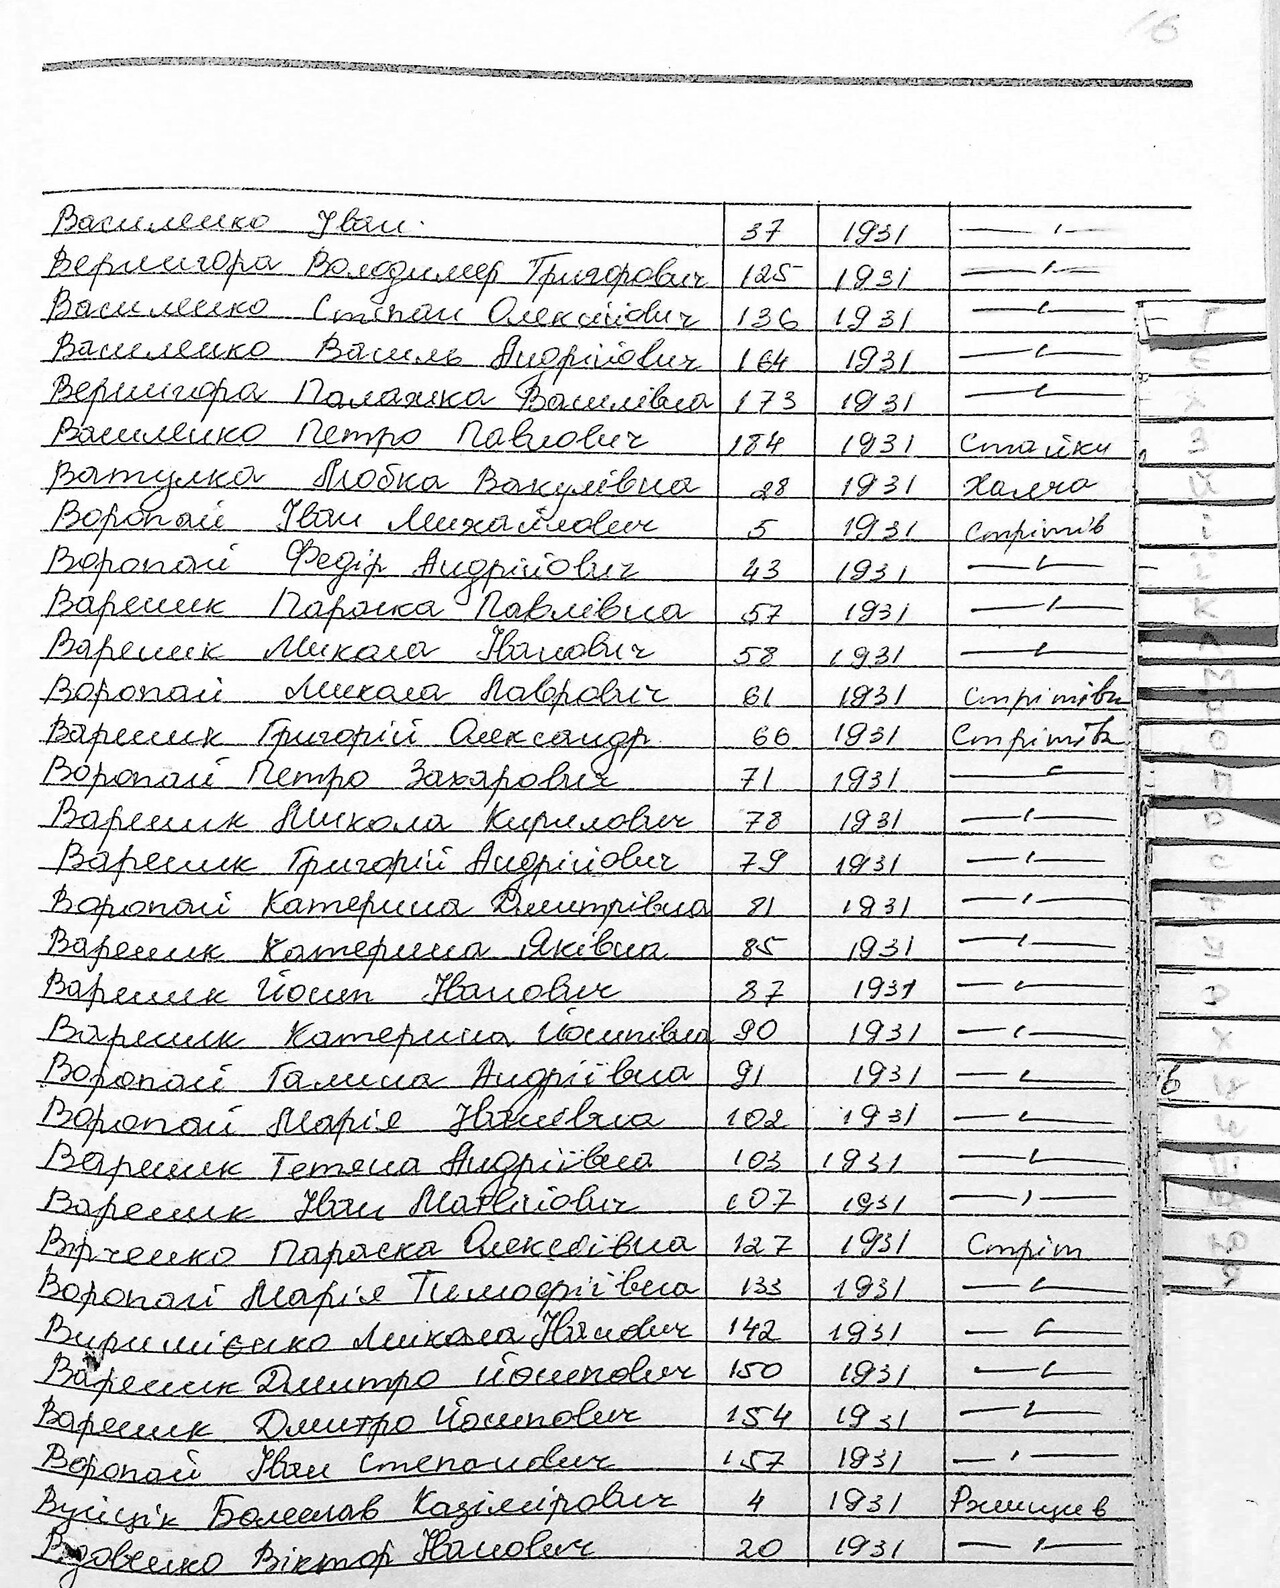 16
Василенко Іван 37 1931 —"—
Вернигора Володимер Григорович 125 1931 —"—
Василенко Степан Олексійович 136 1931 —"—
Василенко Василь Андрійович 164 1931 —"—
Вернигора Палажка Василівна 173 1931 —"—
Василенко Петро Павлович 184 1931 Стайки
Ватулка Любка Вакулівна 28 1931 Халча
Воропай Іван Михайлович 5 1931 Стрітів
Воропай Федір Андрійович 43 1931 —"—
Вареник Параска Павлівна 57 1931 —"—
Вареник Микола Іванович 58 1931 —"—
Воропай Микола Лаврович 61 1931 Стрітівк
Вареник Григорій Олександр. 66 1931 Стрітівк
Воропай Петро Захарович 71 1931 —"—
Вареник Микола Кирилович 78 1931 —"—
Вареник Григорій Андрійович 79 1931 —"—
Воропай Катерина Дмитрівна 81 1931 —"—
Вареник Катерина Яківна 85 1931 —"—
Вареник Йосип Іванович 87 1931 —"—
Вареник Катерина Йосипівна 90 1931 —"—
Воропай Галина Андріївна 91 1931 —"—
Воропай Марія Іванівна 102 1931 —"—
Вареник Тетяна Андріївна 103 1931 —"—
Вареник Іван Матвійович 107 1931 —"—
Вірченко Параска Олексіївна 127 1931 Стріт
Воропай Марія Тимофіївна 133 1931 —"—
Микола Іванович 142 1931 —"—
Вареник Дмитро Йосипович 150 1931 —"—
Вареник Дмитро Йосипович 154 1931 —"—
Воропай Іван Степанович 157 1931 —"—
Вуйцік Болеслав Казімірович 4 1931 Ржищів
Вдовенко Віктор Іванович 20 1931 —"—